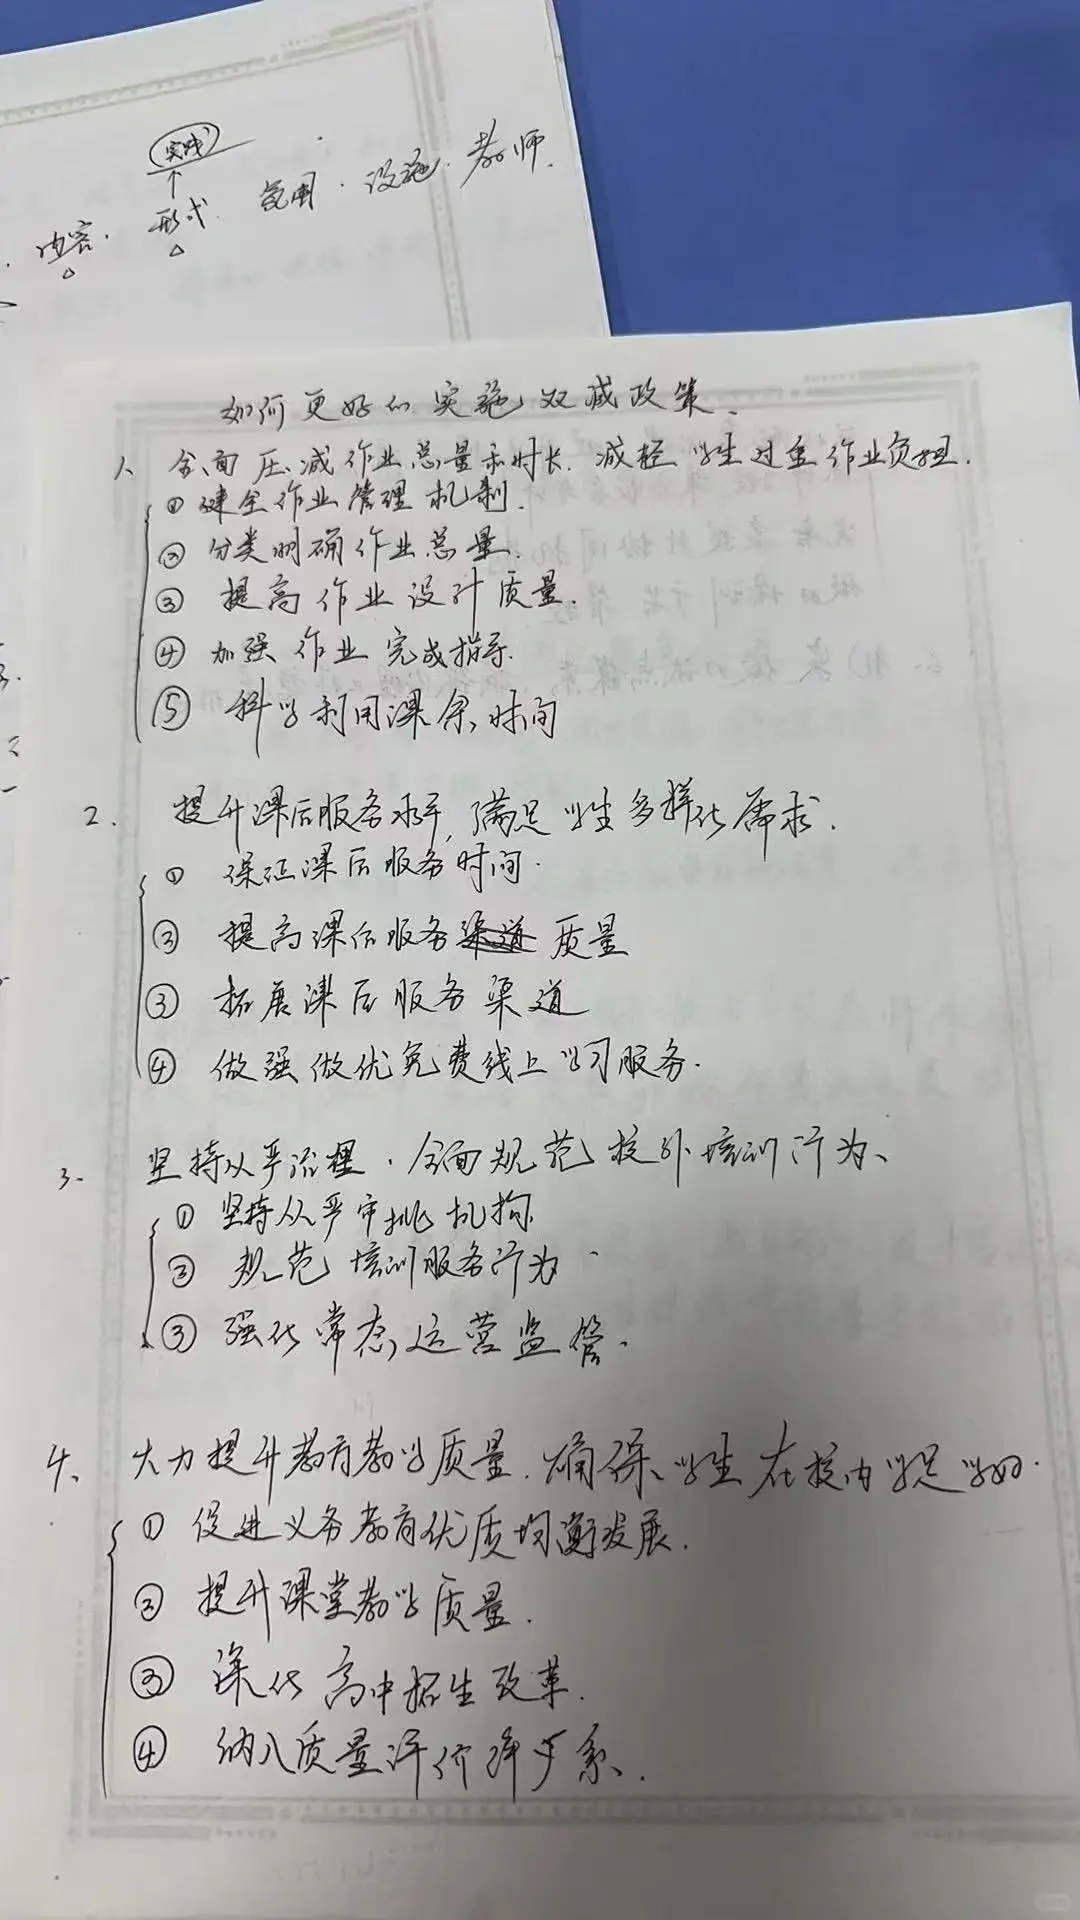 实践
内容. 形式. 氛围. 设施. 教师.
如何更好的实施双减政策.
1、全面压减作业总量和时长. 减轻学生过重作业负担.
① 健全作业管理机制.
② 分类明确作业总量.
③ 提高作业设计质量.
④ 加强作业完成指导.
⑤ 科学利用课余时间
2. 提升课后服务水平, 满足学生多样化需求.
① 保证课后服务时间.
② 提高课后服务渠道质量
③ 拓展课后服务渠道
④ 做强做优免费线上学习服务.
3. 坚持从严治理. 全面规范校外培训行为、
① 坚持从严审批机构
② 规范培训服务行为.
③ 强化常态运营监管.
4、大力提升教育教学质量. 确保学生在校内学足学好.
① 促进义务教育优质均衡发展.
② 提升课堂教学质量.
③ 深化高中招生改革.
④ 纳入质量评价体系.